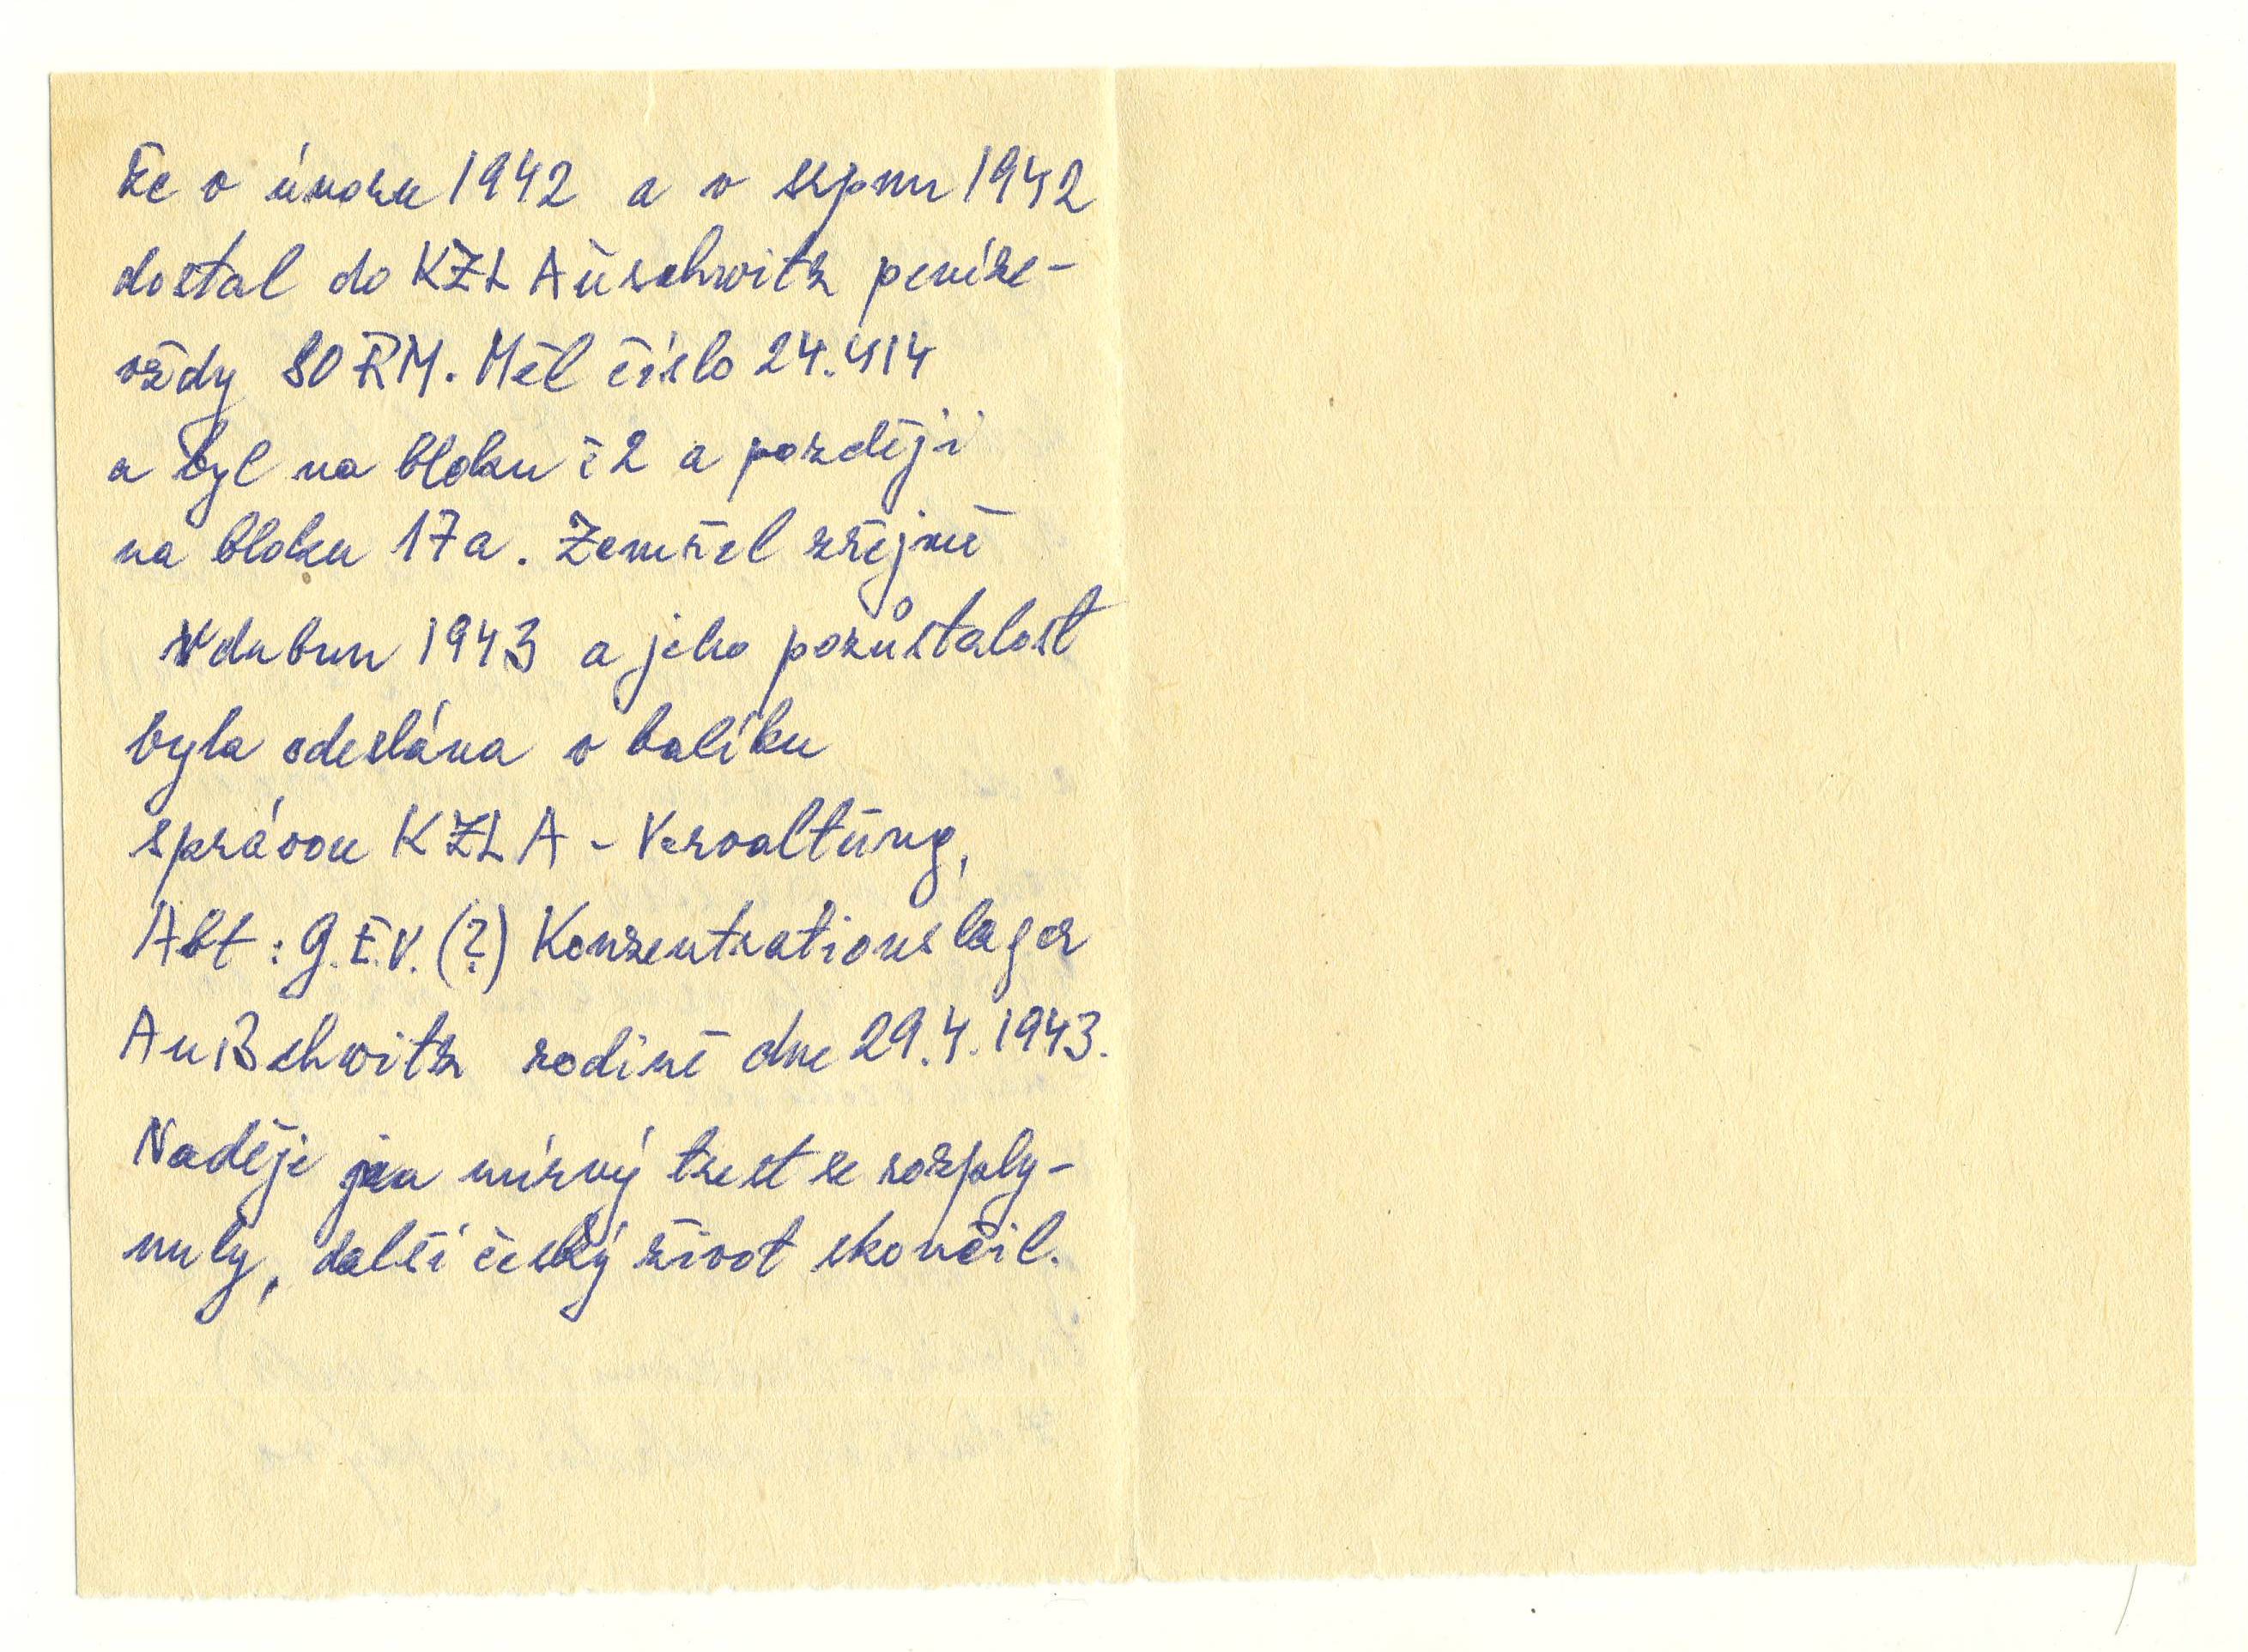 že v únoru 1942 a v srpnu 1942
dostal do KZL Aŭschwitz peníze-
vždy 80 RM. Měl číslo 24.414
a byl na bloku č 2 a později
na bloku 17a. Zemřel zřejmě
v dubnu 1943 a jeho pozůstalost
byla odeslána v balíku
správou KZL A - Verwaltŭng,
Abt: G.E.V. (?) Konzentrationslager
Außchwitz rodině dne 29.4.1943.
Naděje na mírný trest se rozply-
nuly, další český život skončil.